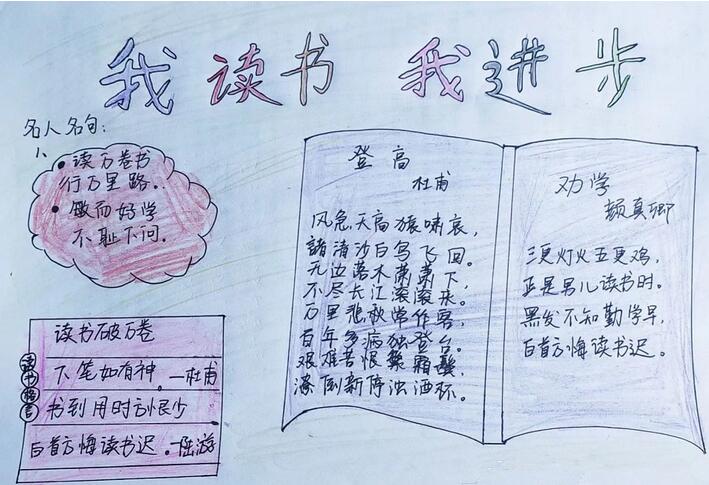 我读书 我进步
名人名句：
1、
• 读万卷书
行万里路。
• 敏而好学
不耻下问。
读书破万卷
下笔如有神。—杜甫
书到用时方恨少
白首方悔读书迟。—陆游
读书格言
登高
杜甫
风急天高猿啸哀，
渚清沙白鸟飞回。
无边落木萧萧下，
不尽长江滚滚来。
万里悲秋常作客，
百年多病独登台。
艰难苦恨繁霜鬓，
潦倒新停浊酒杯。
劝学
颜真卿
三更灯火五更鸡，
正是男儿读书时。
黑发不知勤学早，
白首方悔读书迟。